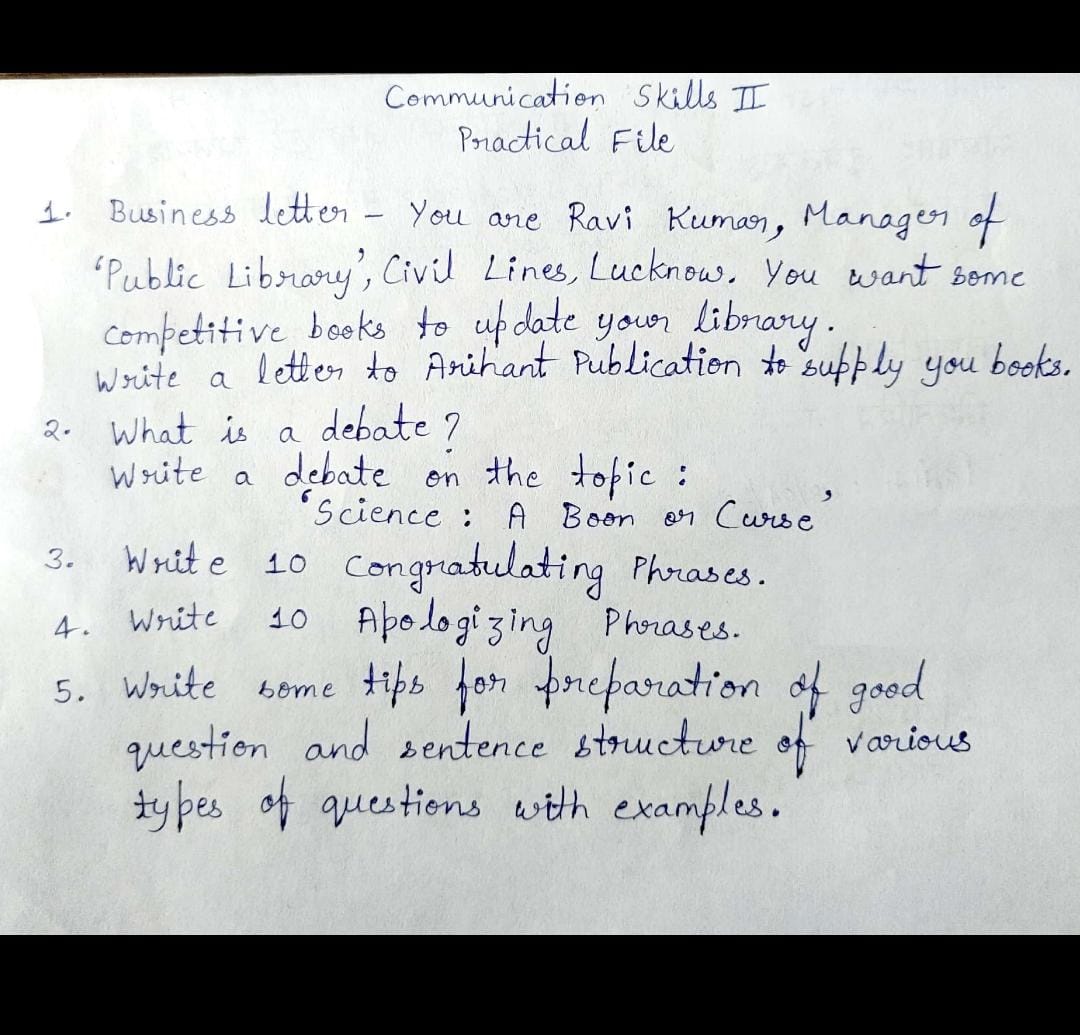 Communication Skills II
Practical File
1. Business letter - You are Ravi Kumar, Manager of
'Public Library', Civil Lines, Lucknow. You want some
competitive books to update your library.
Write a letter to Arihant Publication to supply you books.
2. What is a debate?
Write a debate on the topic :
'Science : A Boon or Curse'
3. Write 10 Congratulating Phrases.
4. Write 10 Apologizing Phrases.
5. Write some tips for preparation of good
question and sentence structure of various
types of questions with examples.